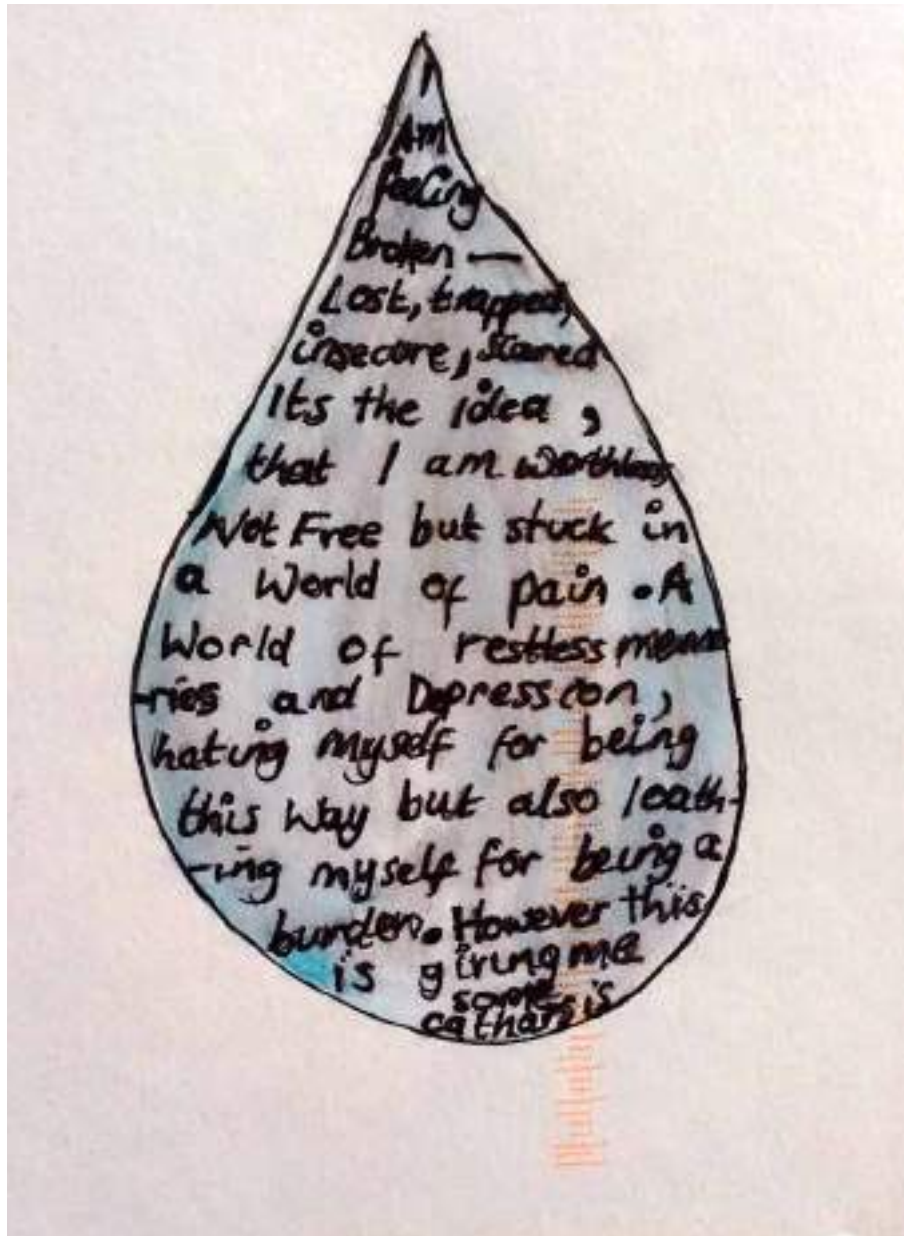 I
Am
feeling
Broken —
Lost, trapped,
insecure, scared
Its the idea,
that I am worthless
Not Free but stuck in
a World of pain. A
World of restless memo
-ries and Depression,
hating myself for being
this way but also loath-
-ing myself for being a
burden. However this
is giving me
some
catharsis